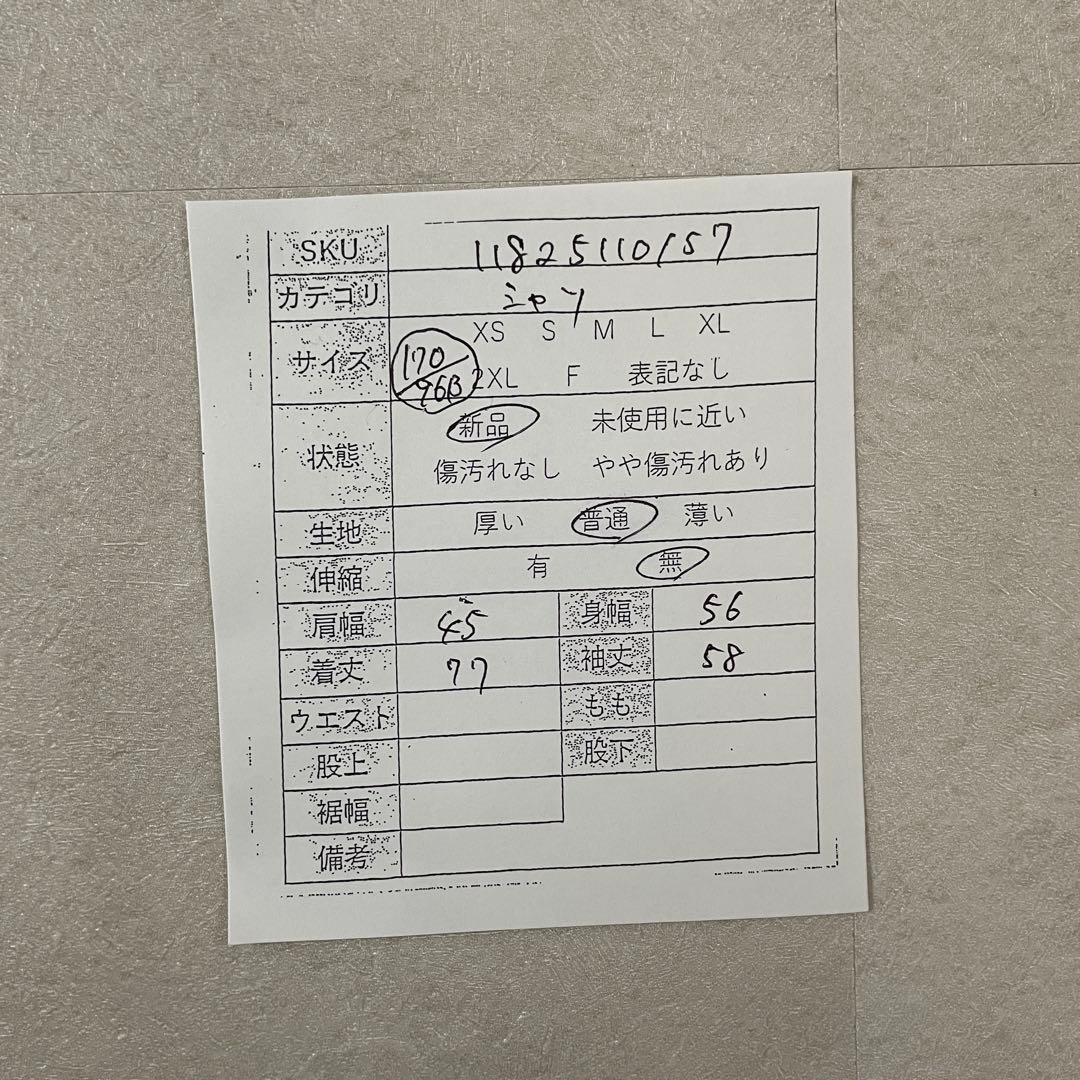 SKU 11825110157
カテゴリ シャツ
サイズ 170/96B XS S M L XL
2XL F 表記なし
状態 新品 未使用に近い
傷汚れなし やや傷汚れあり
生地 厚い 普通 薄い
伸縮 有 無
肩幅 45 身幅 56
着丈 77 袖丈 58
ウエスト もも
股上 股下
裾幅
備考